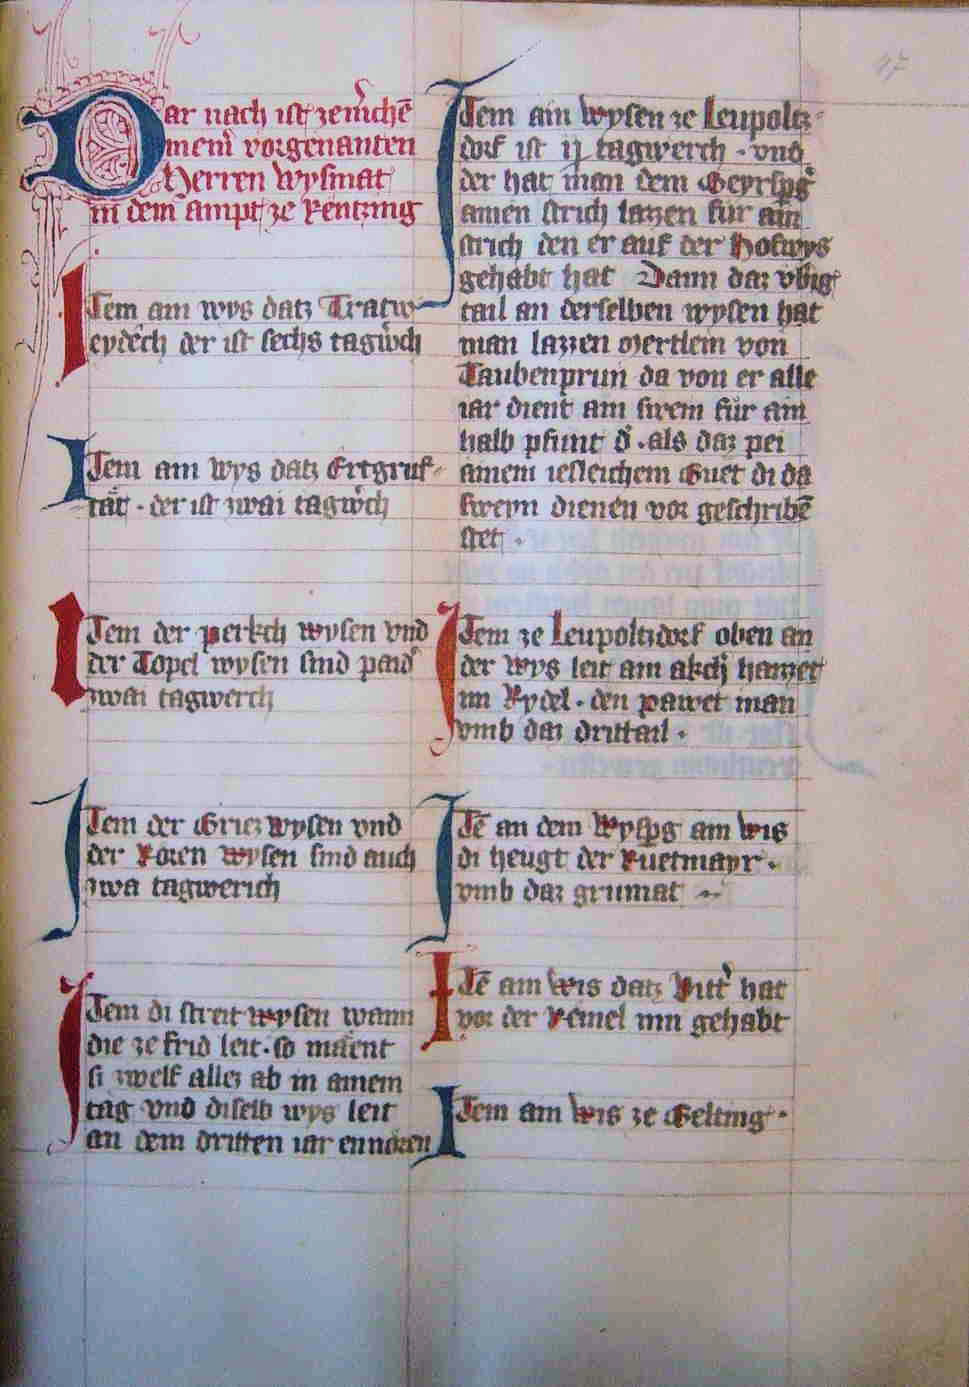 Dar nach ist ze m̓chē
meinr̓ vorgenanten
Herren wysmat
in dem ampt ze Rentzing
Item ain wys datz Tratw
eydech der ist sechs tagwͦch
Item ain wys datz Ertgruf
tät · der ist zwai tagwͦch
Item der perkch wysen vnd
der Topel wysen sind paid̓
zwai tagwerch
Item der Griez wysen vnd
der Roren wysen sind auch
zwa tagwerich
Item di streit wysen wann
die ze frid leit · so mäent
si zwelf allez ab in ainem
tag vnd diselb wys leit
an dem dritten iar ennoren
Item ain wysen ze Leupoltz
dorf ist ij tagwerch · vnd
der hat man dem Geyrsp̄g̓
ainen strich lazzen für ain
strich den er auf der Hofwys
gehabt hat Dann daz vb̓ig
tail an derselben wysen hat
man lazzen Mertlein von
Taubenprun da von er alle
iar dient ain swein für ain
halb pfunt d̓ · als daz pei
ainem iesleichem Guet di da
swein dienen vor geschribē
stet ·
Item ze Leupoltzdorf oben an
der wys leit ain akch̓ haizzet
im Rydel · den pawet man
vmb daz drittail ·
Itē an dem Wysp̄g ain wis
di heugt der Ruetmayr ·
vmb daz grumat
Itē ain wis datz hat
vor der Reinel inn gehabt
Item ain wis ze Gelting ·